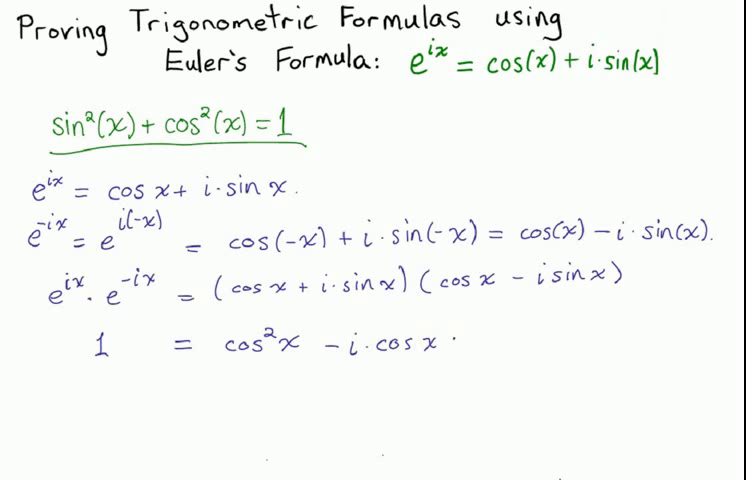 Proving Trigonometric Formulas using
Euler's Formula: e^{ix} = cos(x) + i·sin(x)
sin²(x) + cos²(x) = 1
e^{ix} = cos x + i·sin x.
e^{-ix} = e^{i(-x)} = cos(-x) + i·sin(-x) = cos(x) - i·sin(x).
e^{ix} · e^{-ix} = (cos x + i·sin x)(cos x - i sin x)
1 = cos²x - i·cos x ·